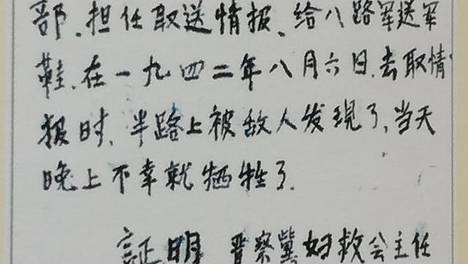 部、担任取送情报、给八路军送军
鞋、在一九四二年八月六日、去取情
报时、半路上被敌人发現了、当天
晚上不幸就牺牲了.
証明 晋察冀妇救会主任